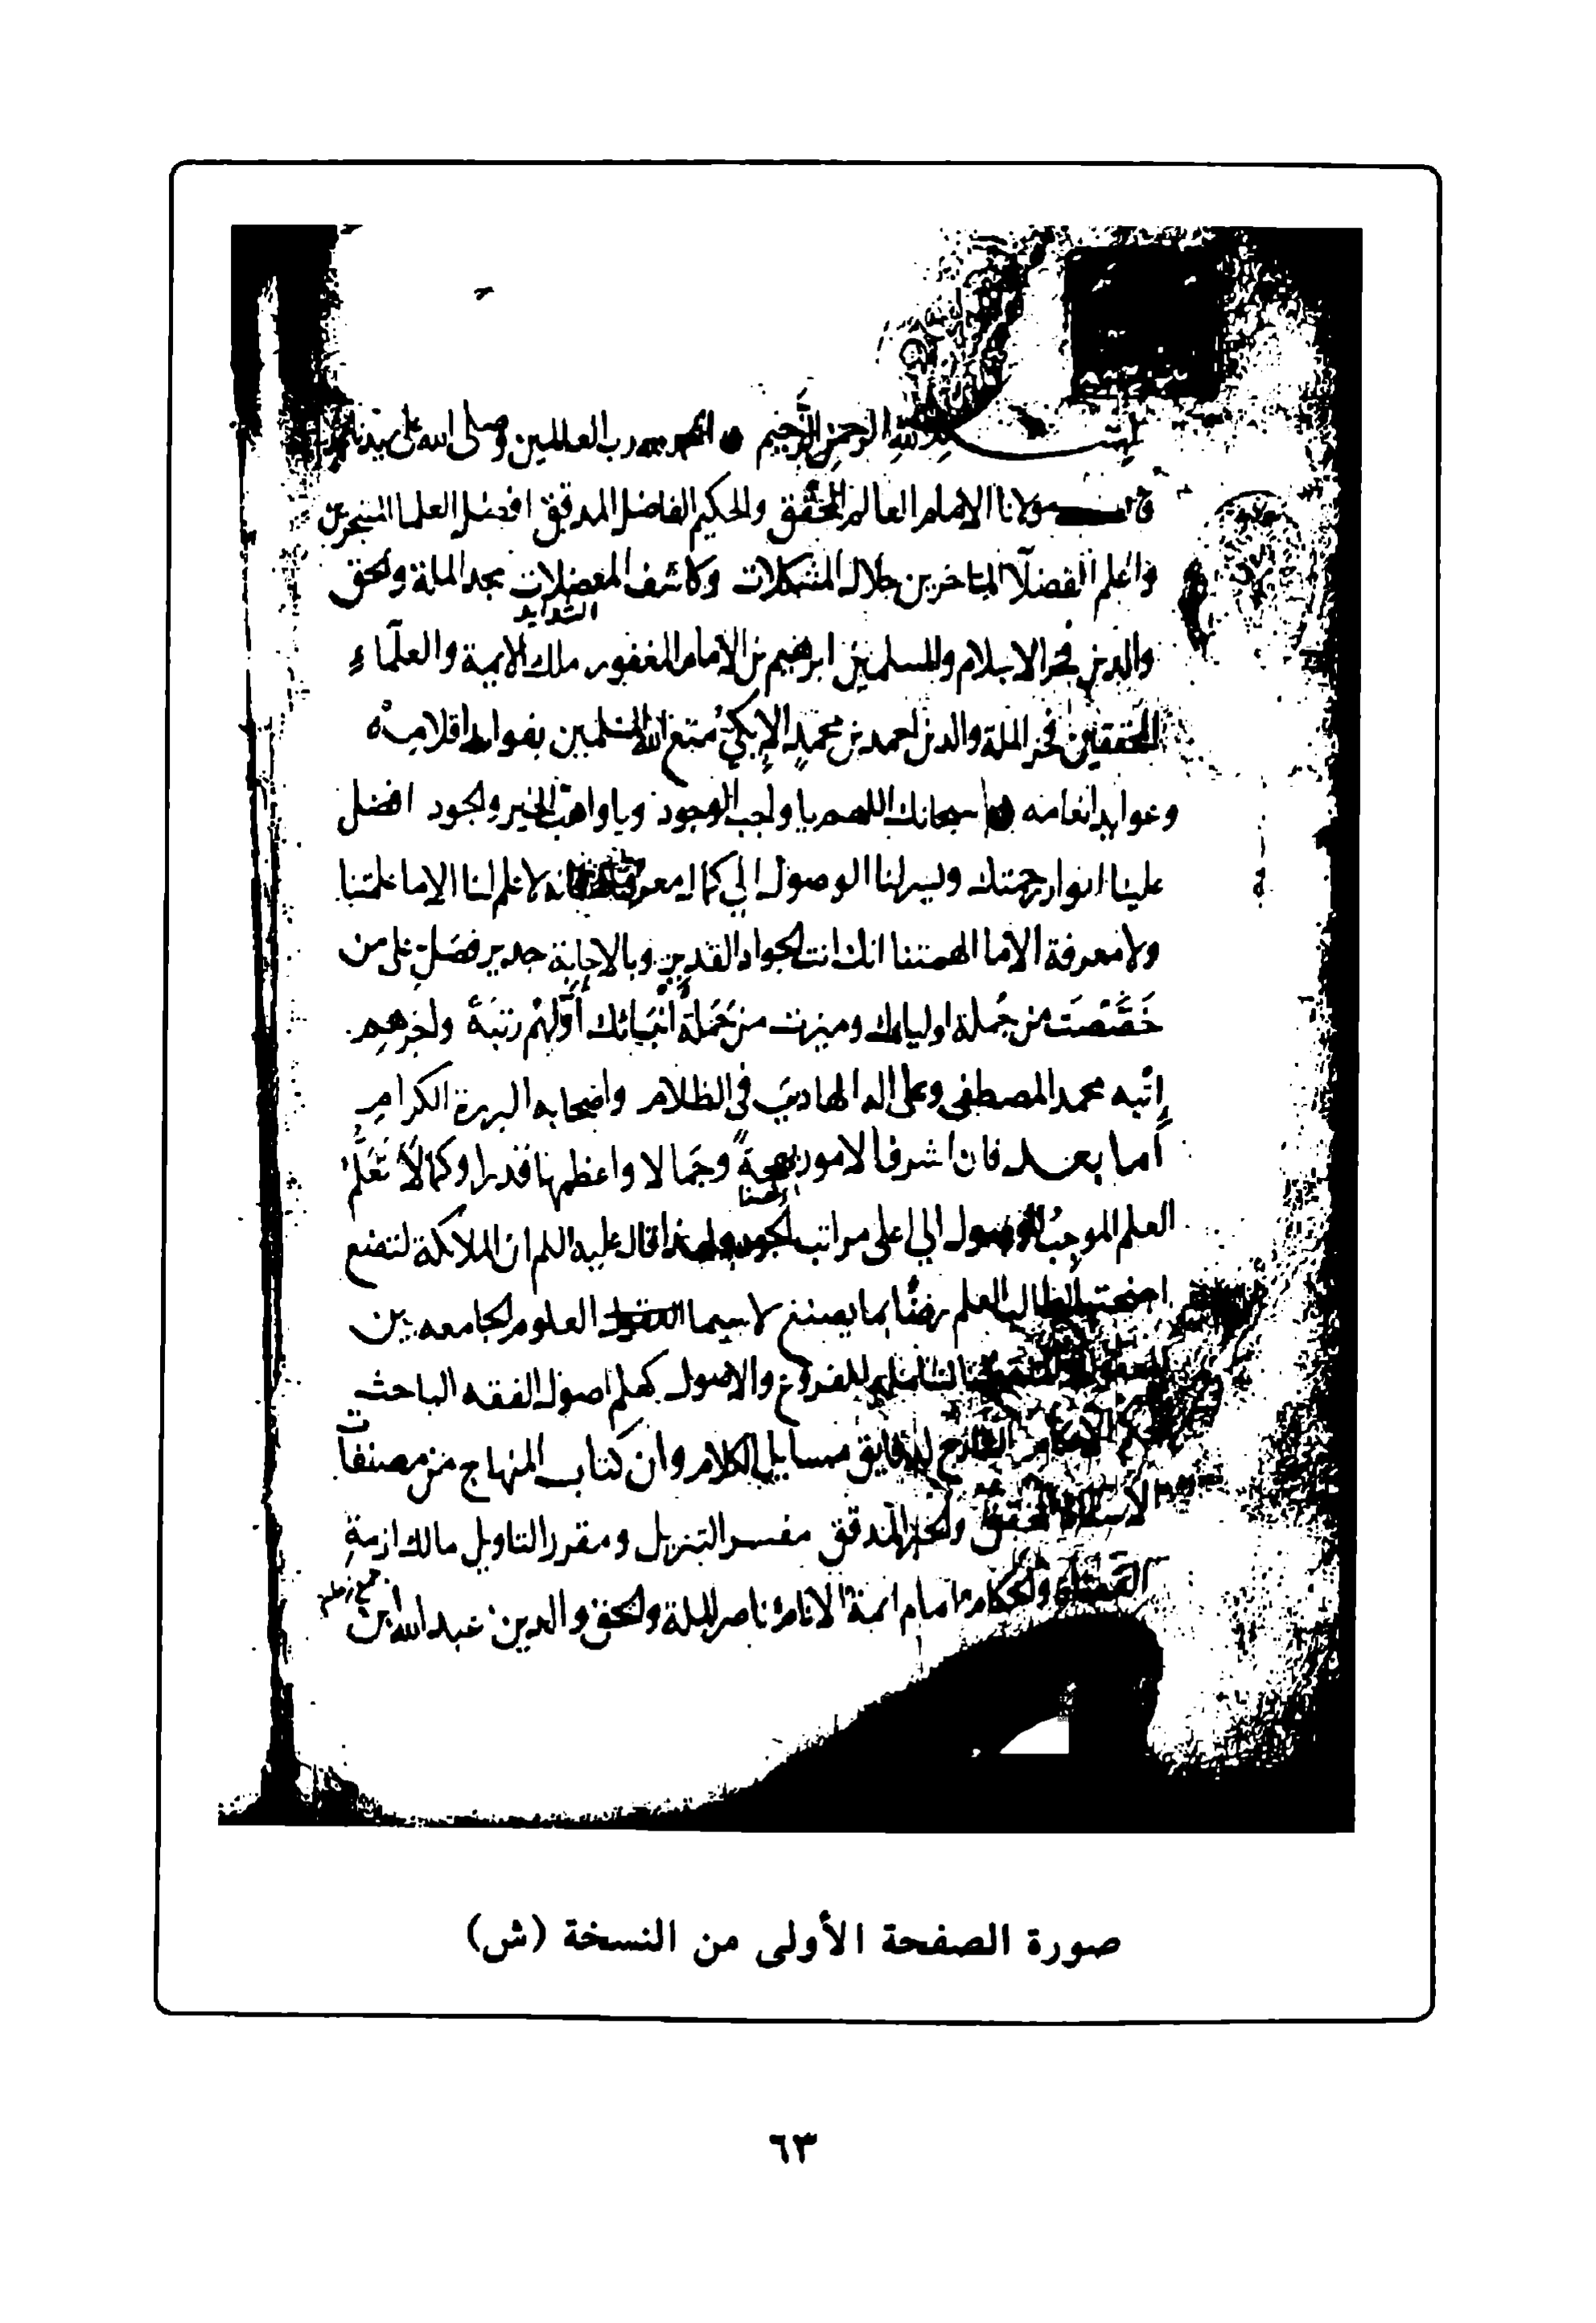 بسم الله الرحمن الرحيم الحمد لله رب العالمين وصلى الله على سيدنا محمد
قال مولانا الامام العالم المحقق والحكيم الفاضل المدقق افضل العلما المتبحرين
واعلم الفضلا المتاخرين حلال المشكلات وكاشف المعضلات مجد الملة والحق
الشدايد
والدين فخر الاسلام والمسلمين ابرهيم بن الامام المغفور ملك الايمة والعلمآء
المحققين فخر الملة والدين احمد بن محمد الإيكي متع الله المسلمين بفوايد اقلامه
وعوايد انعامه سبحانك اللهم يا واجب الوجود ويا واهب الخير والجود افضل
علينا انوار رحمتك ويسر لنا الوصول الي كمال لا علم لنا الا ما علمتنا
ولا معرفة الا ما الهمتنا انك انت الجواد القدير وبالاجابة جدير فصل على من
خصصت من جملة اوليايك وميزت من جملة أنبيائك أولهم رتبة واخرهم
محمد المصطفى وعلى اله الهادين في الظلام واصحابه البررة الكرام
أما بعد فان اشرف الامور بهجة وجمالا واعظمها قدرا وكمالا تعلم
العلم الموجب للوصول الي اعلى مراتب قال عليه السلم ان الملائكة لتضع
اجنحتها لطالب العلم رضًا بما يصنع لا سيما العلوم الجامعه بين
الشاملة للفروع والاصول كعلم اصول الفقه الباحث
لدقايق مسايل الكلام وان كتاب المنهاج من مصنفات
الاستاد المحقق والحبر المدقق مفسر التنزيل ومقرر التاويل مالك ازمة
القضاة والحكام امام ائمة الانام ناصر الملة والحق والدين عبد الله بن
صورة الصفحة الأولى من النسخة (ش)
٦٣